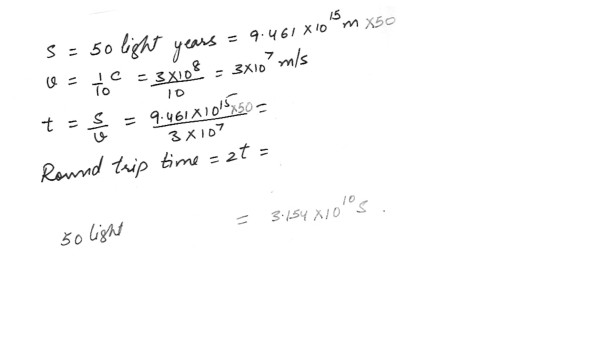 S = 50 light years = 9.461 × 10¹⁵ m ×50
v = 1/10 c = 3×10⁸/10 = 3×10⁷ m/s
t = S/v = 9.461×10¹⁵×50/3×10⁷ =
Round trip time = 2t =
50 light = 3.154×10¹⁰ S.